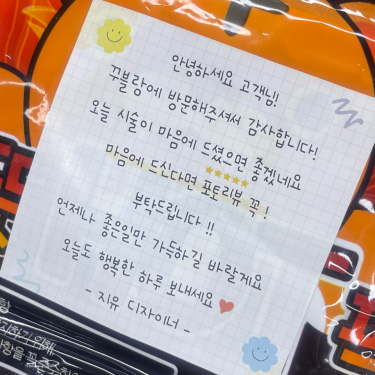 안녕하세요 고객님!
꾸블랑에 방문해주셔서 감사합니다!
오늘 시술이 마음에 드셨으면 좋겠네요
마음에 드신다면 포토리뷰 꼭!
부탁드립니다!!
언제나 좋은일만 가득하길 바랄게요
오늘도 행복한 하루 보내세요
- 지유 디자이너 -